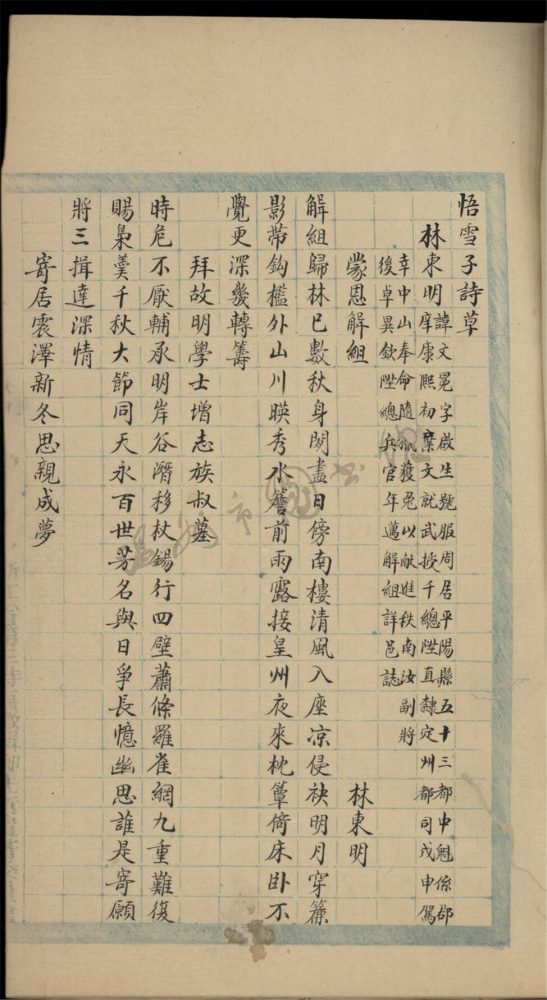 悟雪子詩草
林東明
諱文冕字啟生號服周居平陽縣五十三都中魁係郡
庠康熙初棄文就武授千總陞直隸定州都司戊申駕
幸中山奉命隨狐獲兔以献進秩南汝副將
後卓異欽陞總兵官年邁解組詳邑誌
蒙恩解組 林東明
解組歸林已數秋身閒盡日傍南樓清風入座凉侵袂明月穿簾
影帶鈎檻外山川暎秀水簷前雨露接皇州夜來枕簟倚床卧不
覺更深幾轉籌
拜故明學士增志族叔墓
時危不厭輔承明岸谷潛移杖錫行四壁蕭條羅雀網九重難復
賜梟羹千秋大節同天永百世芳名與日爭長憶幽思誰是寄願
將三揖達深情
寄居震澤新冬思親成夢